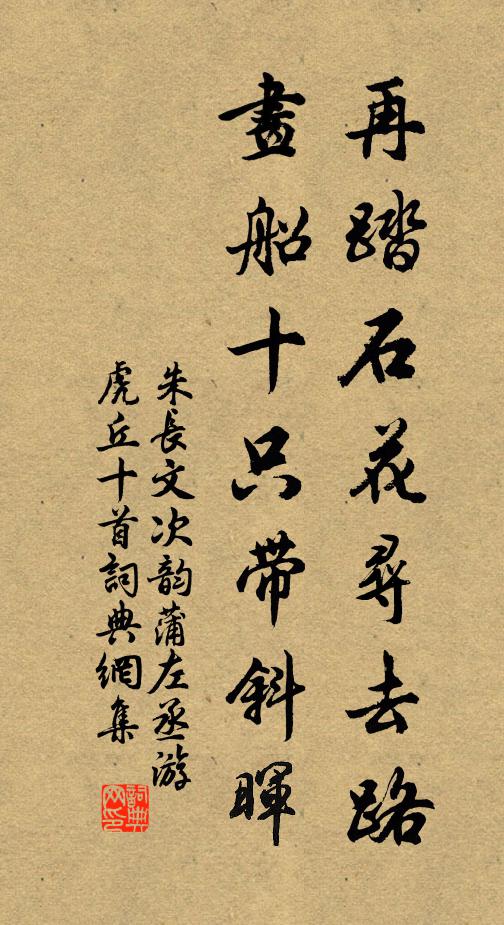 再踏石花尋去路
畫船十只帶斜暉
朱長文次韵蒲左丞游
虎丘十首詞典網集
詞典網印